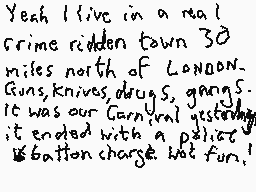 Yeah I live in a real
crime ridden town 30
miles north of LONDON.
Guns, knives, drugs, gangs.
It was our Carnival yesterday
it ended with a police
batton charge. Not fun!